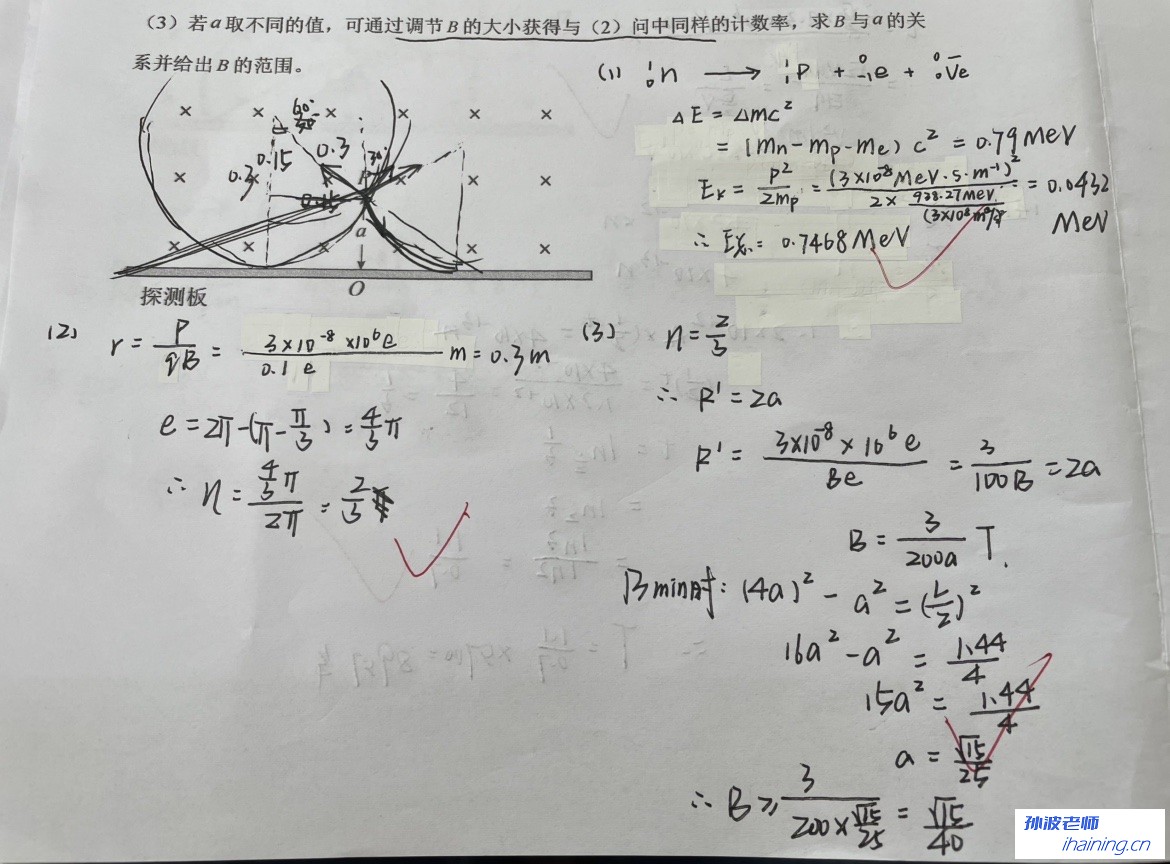 (3) 若a取不同的值，可通过调节B的大小获得与（2）问中同样的计数率，求B与a的关
系并给出B的范围。
60°
0.15
0.3
0.3
a
探测板
O
(1) ¹₀n ⟶ ¹₁P + ⁰₋₁e + ⁰₀ν̄e
ΔE = Δmc²
= (mn-mp-me) c² = 0.79 MeV
Ek = P²/2mp = (3×10⁻⁸ MeV·s·m⁻¹)²/(2× 938.27MeV/(3×10⁸m/s)²) = 0.0432
MeV
= 0.7468 MeV
(2) r = P/qB = 3×10⁻⁸×10⁶e/0.1e m = 0.3m
e = 2π-(π-π/3) = 4/3π
∴ η = (4/3π)/2π = 2/3
(3) η = 2/3
∴ R' = 2a
R' = 3×10⁻⁸×10⁶e/Be = 3/100B = 2a
B = 3/200a T.
Bmin时: (4a)² - a² = (L/2)²
16a² - a² = 1.44/4
15a² = 1.44/4
a = √15/25
∴ B ≥ 3/(200×√15/25) = √15/40
孙波老师
ihaining.cn